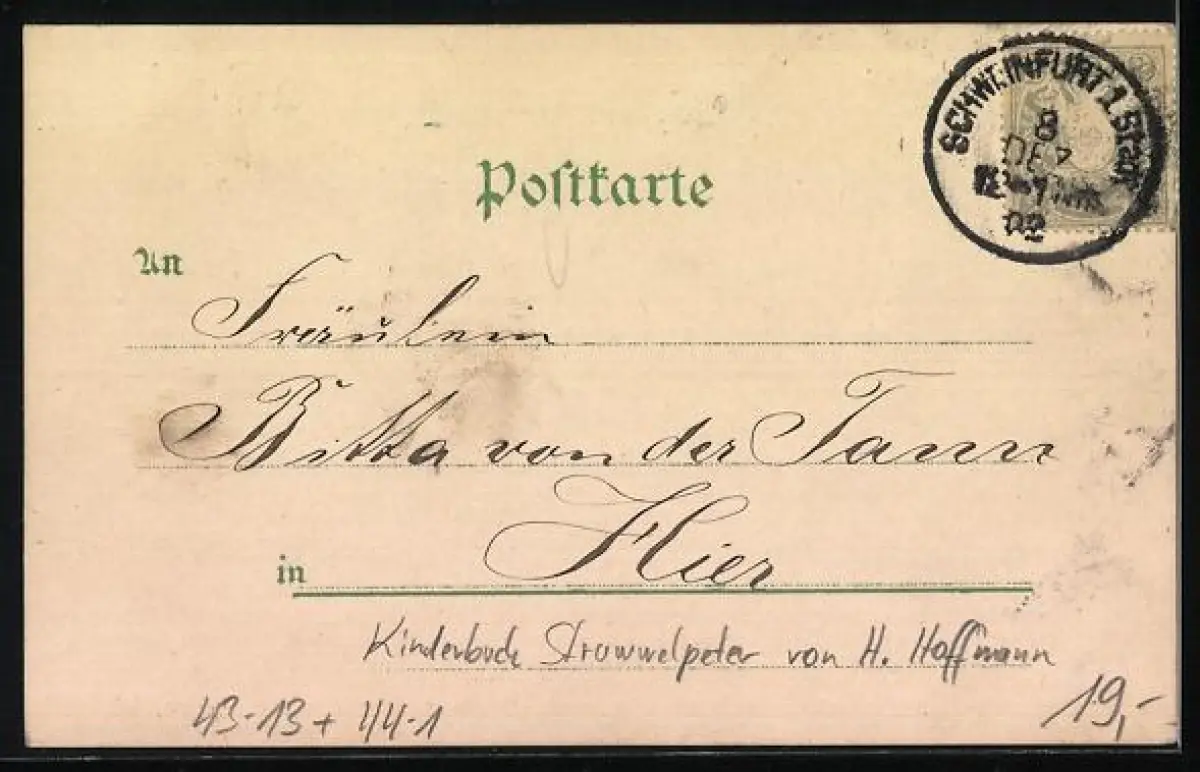 SCHWEINFURT 1 Stadt
8
DEZ
02
Postkarte
An
Fräulein
Bitta von der Tann
in Hier
Kinderbuch Struwwelpeter von H. Hoffmann
43-13 + 44-1
19,-